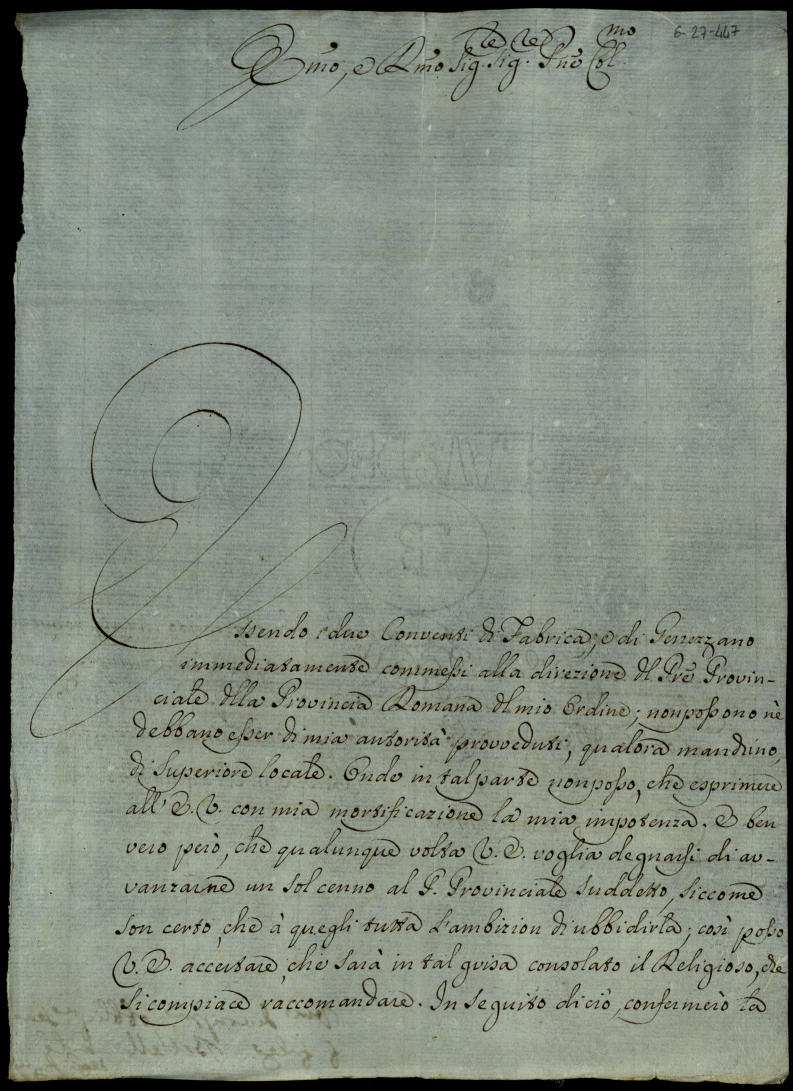 6-27-447
Emo, e Rmo Sig.re Sig.re Pne Col.mo
Essendo i due Conventi di Fabrica, e di Genezzano
immediatamente commessi alla direzione dl Pre Provin-
ciale dlla Provincia Romana dl mio Ordine; non possono nè
debbano esser di mia autorità provveduti, qualora mandino,
di Superiore locale. Onde in tal parte non posso, che esprimere
all' E. V. con mia mortificazione la mia impotenza. E ben
vero però, che qualunque volta V. E. voglia degnarsi di av-
vanzarne un sol cenno al P. Provinciale suddetto, siccome
son certo, che à quegli tutta l'ambizion di ubbidirla; così posso
V. E. accertare, che sarà in tal guisa consolato il Religioso, che
si compiace raccomandare. In seguito di ciò, confermerò la